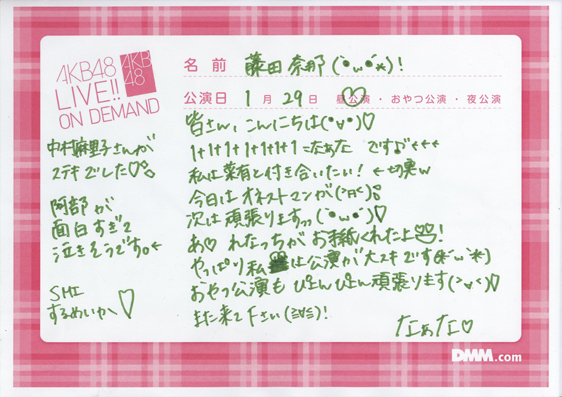 AKB48
LIVE!!
ON DEMAND
AKB
48
名前 藤田奈那(`・ω・´*)!
公演日 1月29日 昼公演・おやつ公演・夜公演
皆さん、こんにちは(・∀・)♡
1+1+1+1+1+1+1=なぁな ですよ♪
私は薬有と付き合いたい! ←切実w
今日はオネストマンが
次は頑張りますっ(`・ω・´)♡
あ♡ れなっちがお手紙くれたよ!
やっぱり私は公演が大スキです(*´ω`*)
おやつ公演もぴょんぴょん頑張ります(>∀<)♡
また来て下さい(≧∀≦)!
なぁな♡
中村麻里子さんが
ステキでした♡
阿部が
面白すぎて
泣きそうです。
SHI
するめいか♡
DMM.com